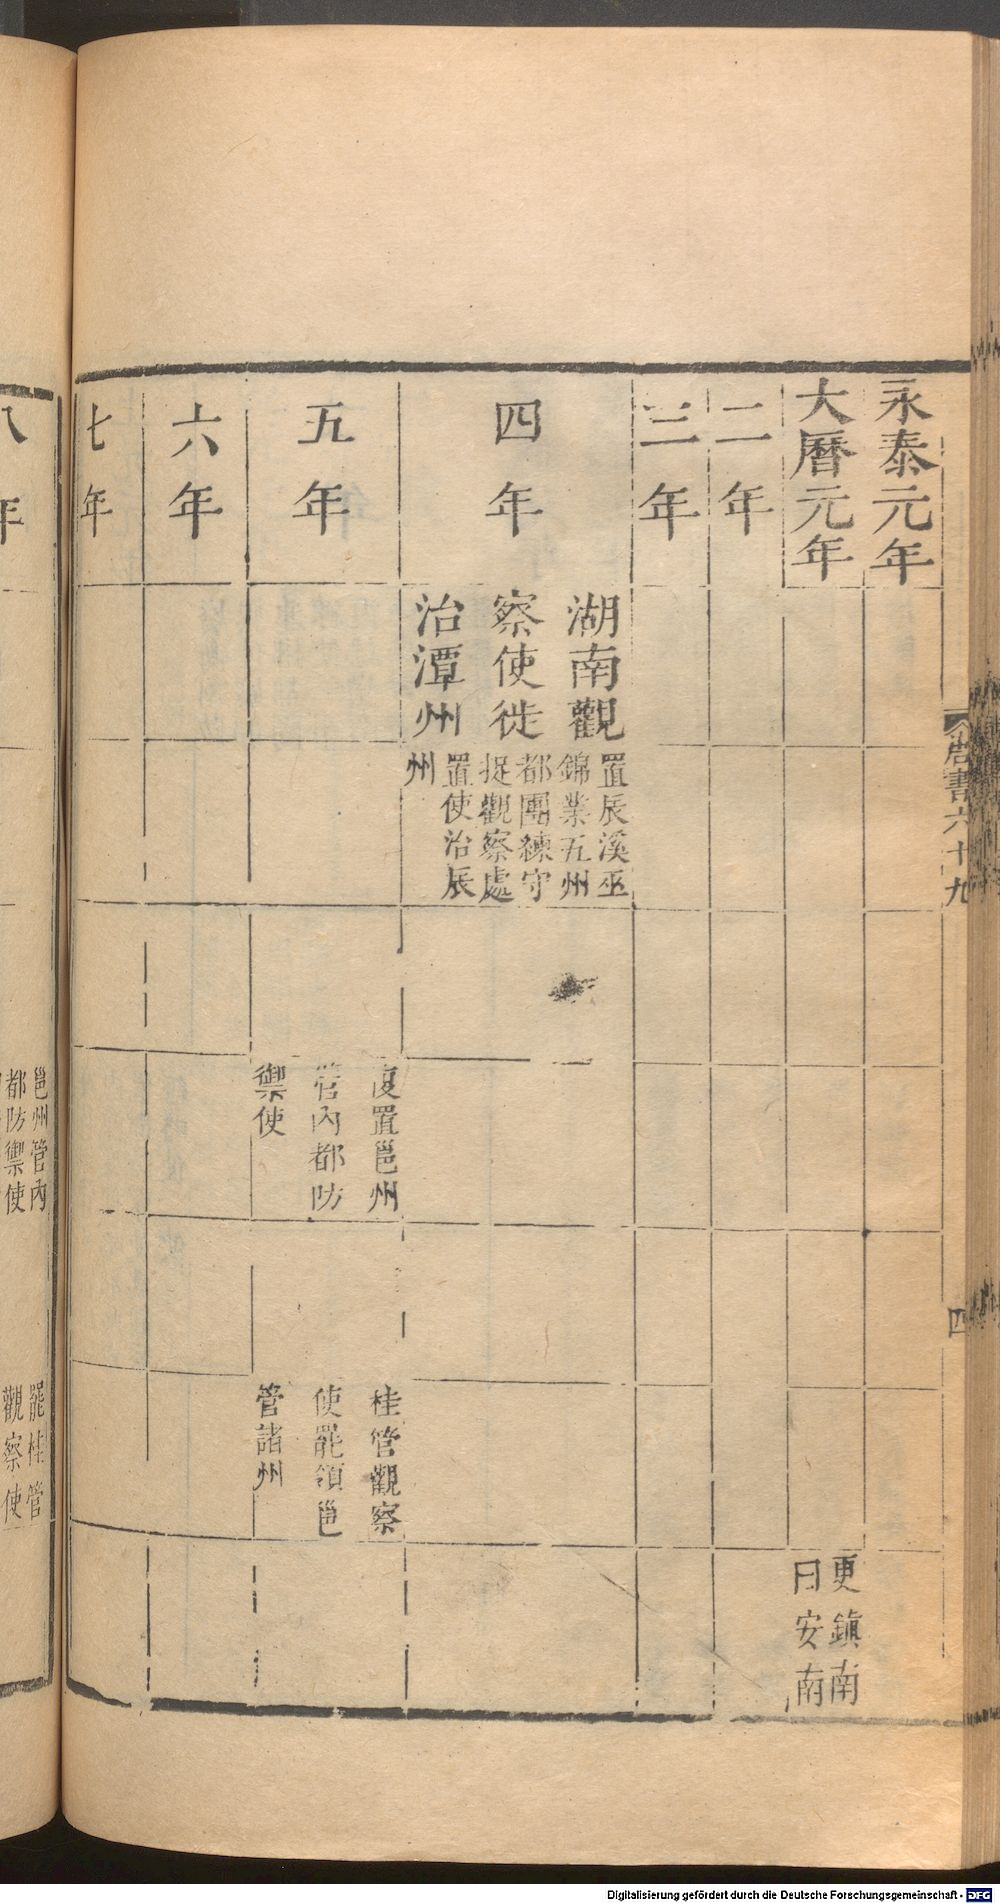 唐書六十九
四
永泰元年
大曆元年
更鎮南
曰安南
二年
三年
四年
湖南觀
察使徙
治潭州
置辰溪巫
錦業五州
都團練守
捉觀察處
置使治辰
州
五年
復置邕州
管內都防
禦使
桂管觀察
使罷領邕
管諸州
六年
七年
八年
邕州管內
都防禦使
罷桂管
觀察使
Digitalisierung gefördert durch die Deutsche Forschungsgemeinschaft - DFG